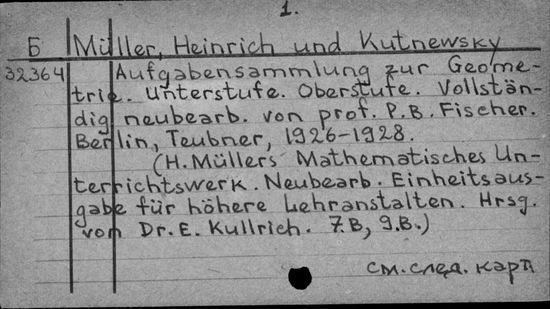 1.
Б Müller, Heinrich und Kutnewsky
32364 Aufgabensammlung zur Geome-
trie. Unterstufe. Oberstufe. Vollstän-
dig neubearb. von prof. P.B. Fischer.
Berlin, Teubner, 1926-1928.
(H. Müllers Mathematisches Un-
terrichtswerk. Neubearb. Einheitsaus-
gabe für höhere Lehranstalten. Hrsg.
von Dr. E. Kullrich. 7.B, 9.B.)
см. след. карт